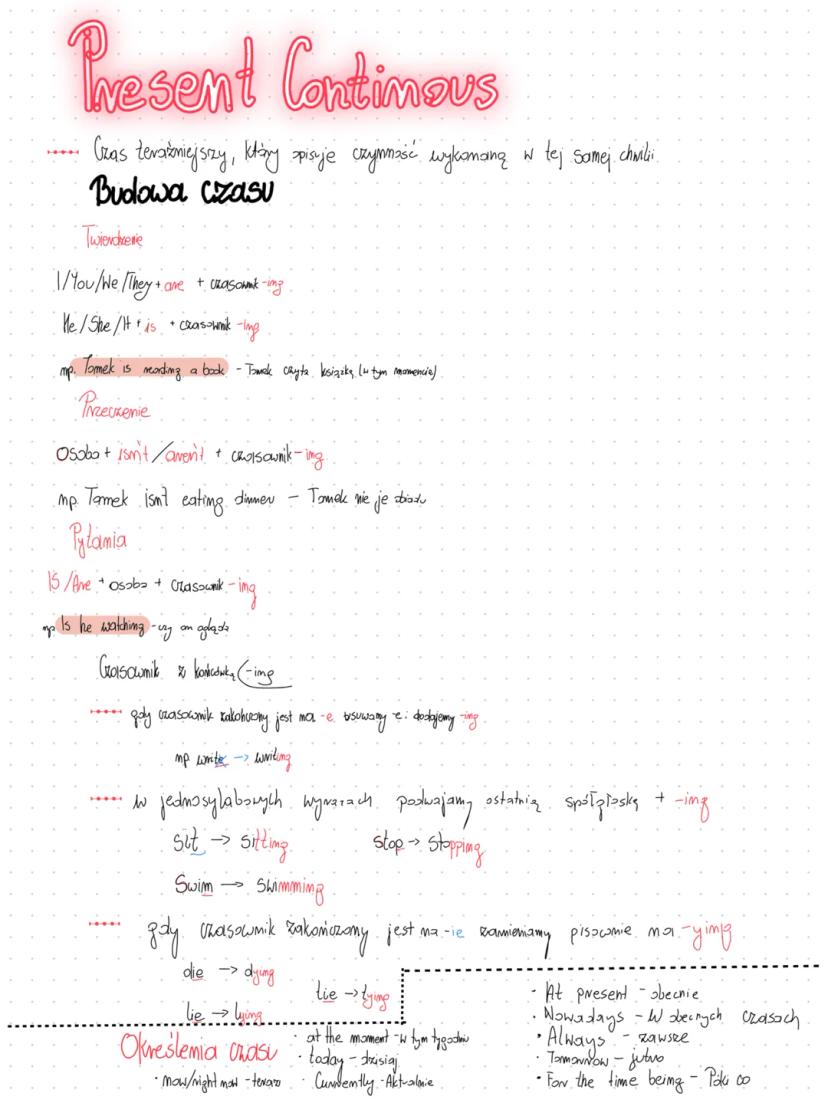 Present Continous
Czas teraźniejszy, który opisuje czynność wykonaną w tej samej chwilii
Budowa czasu
Twierdzenie
I/You/We/They + are + czasownik -ing
He/She/It + is + czasownik -ing
np. Tomek is reading a book - Tomek czyta książkę (w tym momencie)
Przeczenie
Osoba + isn't/aren't + czasownik -ing
np. Tomek isn't eating dinner - Tomek nie je obiadu
Pytania
IS/Are + osoba + czasownik -ing
np Is he watching - czy on ogląda
Czasownik z końcówką -ing
gdy czasownik zakończony jest na -e usuwamy e i dodajemy -ing
np write -> writing
w jednosylabowych wyrazach podwajamy ostatnią spółgłoskę + -ing
sit -> sitting stop -> stopping
Swim -> swimming
gdy czasownik zakończony jest na -ie zamieniamy pisownie na -ying
die -> dying
tie -> tying
lie -> lying
Określenia czasu
• now/right now - teraz
• at the moment - w tym tygodniu
• today - dzisiaj
• Currently - Aktualnie
• At present - obecnie
• Nowadays - W obecnych czasach
• Always - zawsze
• Tomorrow - jutro
• For the time being - Póki co